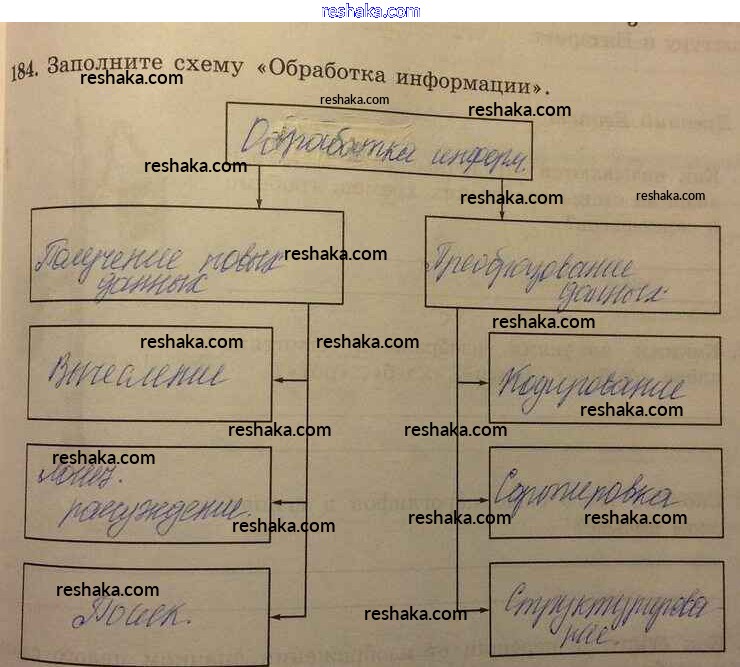 reshaka.com
184. Заполните схему «Обработка информации».
reshaka.com
reshaka.com
reshaka.com
reshaka.com
Обработка информ.
reshaka.com
reshaka.com
reshaka.com
Получение новых
данных
reshaka.com
Преобразование
данных
reshaka.com
reshaka.com
reshaka.com
Вычесление
Кодирование
reshaka.com
reshaka.com
reshaka.com
reshaka.com
рассуждение.
reshaka.com
Сортировка
reshaka.com
reshaka.com
reshaka.com
Поиск.
reshaka.com
Структурирова-
ние.